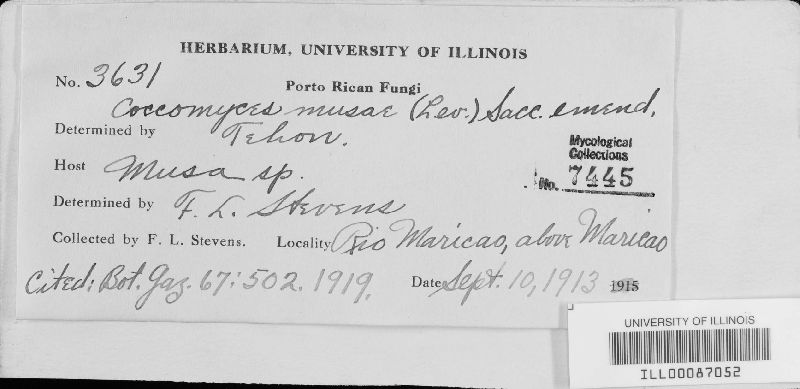 HERBARIUM, UNIVERSITY OF ILLINOIS
No. 3631
Porto Rican Fungi
Coccomyces musae (Lev.) Sacc. emend.
Determined by Tehon.
Mycological
Collections
Host Musa sp.
No. 7445
Determined by F. L. Stevens
Collected by F. L. Stevens. Locality Rio Maricao, above Maricao
Cited: Bot. Gaz. 67:502. 1919. Date Sept. 10, 1913 1915
UNIVERSITY OF ILLINOIS
ILL00087052